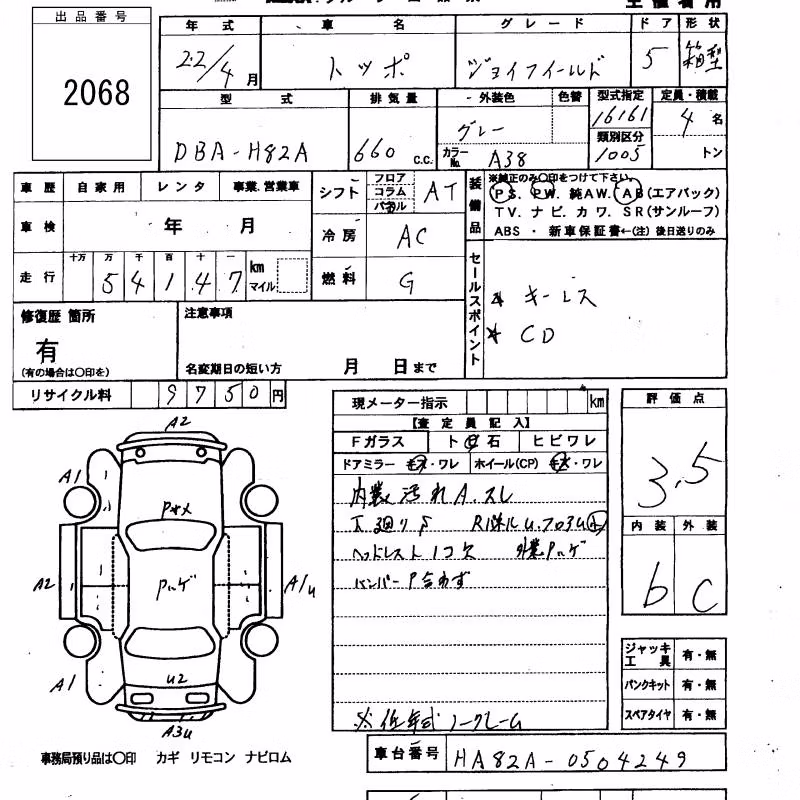 出品番号
2068
年式 車名 グレード ドア 形状
22/4月 トッポ ジョイフィールド 5 箱型
型式 排気量 外装色 色替 型式指定 定員・積載
DBA-H82A 660 c.c. グレー 16161 4名
カラーNo. A38 類別区分 1005 トン
車歴 自家用 レンタ 事業.営業車 シフト フロア コラム パネル AT
装備品 ※純正のみ〇印をつけて下さい。
PS. PW. 純AW. AB(エアバック)
TV. ナビ. カワ. SR(サンルーフ)
ABS ・ 新車保証書←(注) 後日送りのみ
車検 年 月 冷房 AC
走行 十万 万 千 百 十 一
54147 km マイル 燃料 G
セールスポイント
キーレス
CD
修復歴 箇所 注意事項
有
(有の場合は〇印を) 名変期日の短い方 月 日まで
リサイクル料 9750円
現メーター指示 km
【査定員記入】
Fガラス ト 石 ヒビワレ
ドアミラー ・ワレ ホイール(CP) ・ワレ
内装汚れA.スレ
ヘッドレスト1コ欠
バンパーP合わず
※低年式ノークレーム
評価点
3.5
内装 外装
b C
A2
A1
A2
A/u
Pハゲ
U2
A1
A3u
ジャッキ工具 有・無
パンクキット 有・無
スペアタイヤ 有・無
事務局預り品は〇印 カギ リモコン ナビロム
車台番号 HA82A-0504249